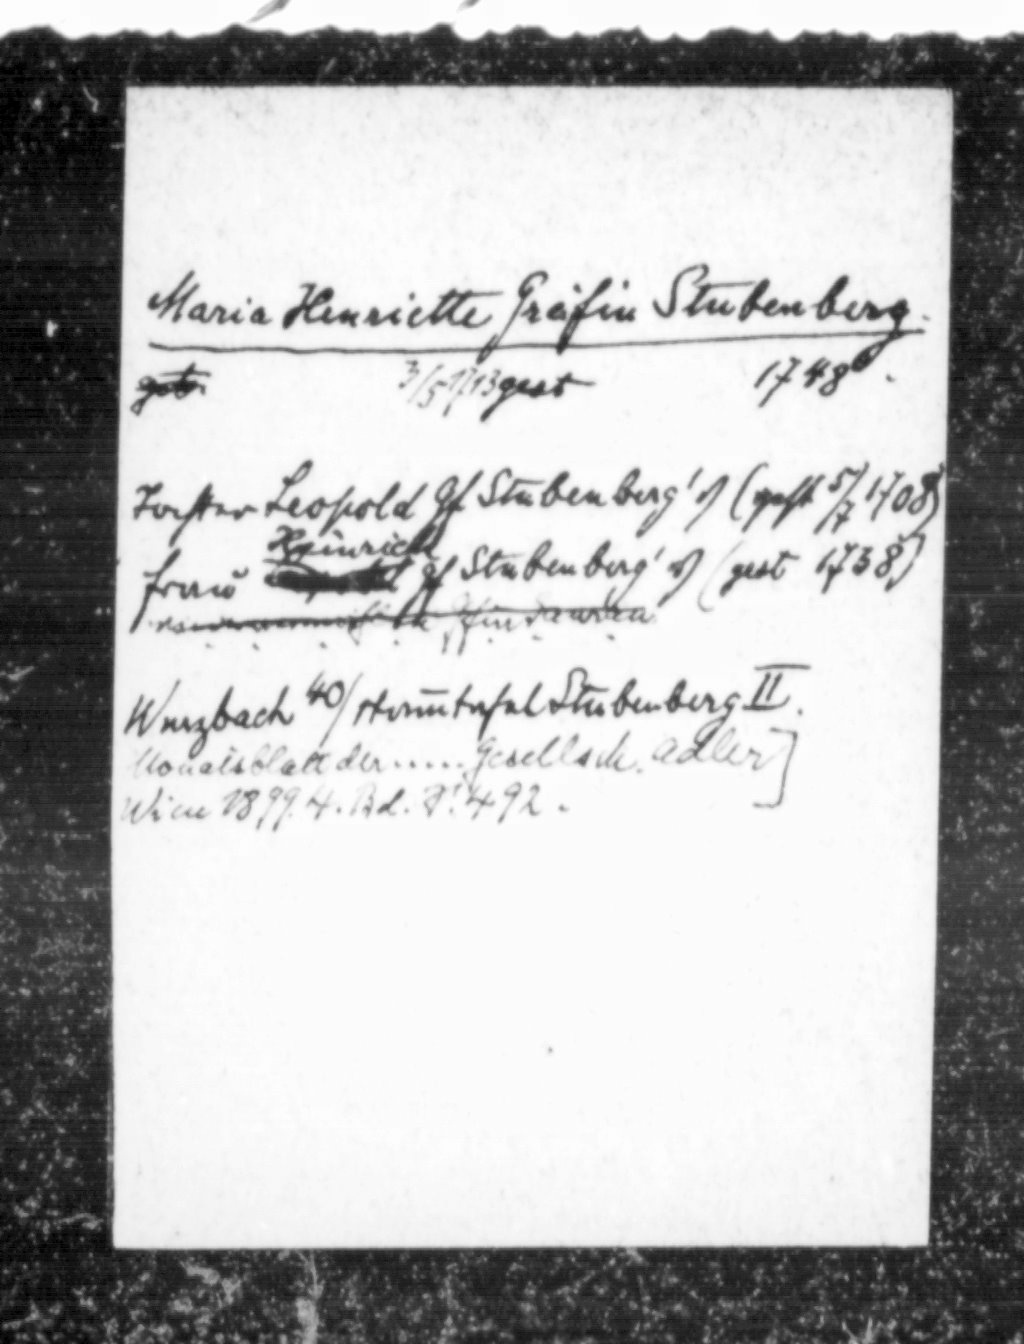 Maria Henriette Gräfin Stubenberg.
geb. 3/5 1713 gest 1748.
Tochter Leopold Gf Stubenberg's (gest 5/7 1708)
Heinrich
Frau Gf Stubenberg's (gest 1738)
Wurzbach 40/ Stammtafel Stubenberg II.
Monatsblatt der..... Gesellsch. Adler]
Wien 1899. 4. Bd. S. 492.